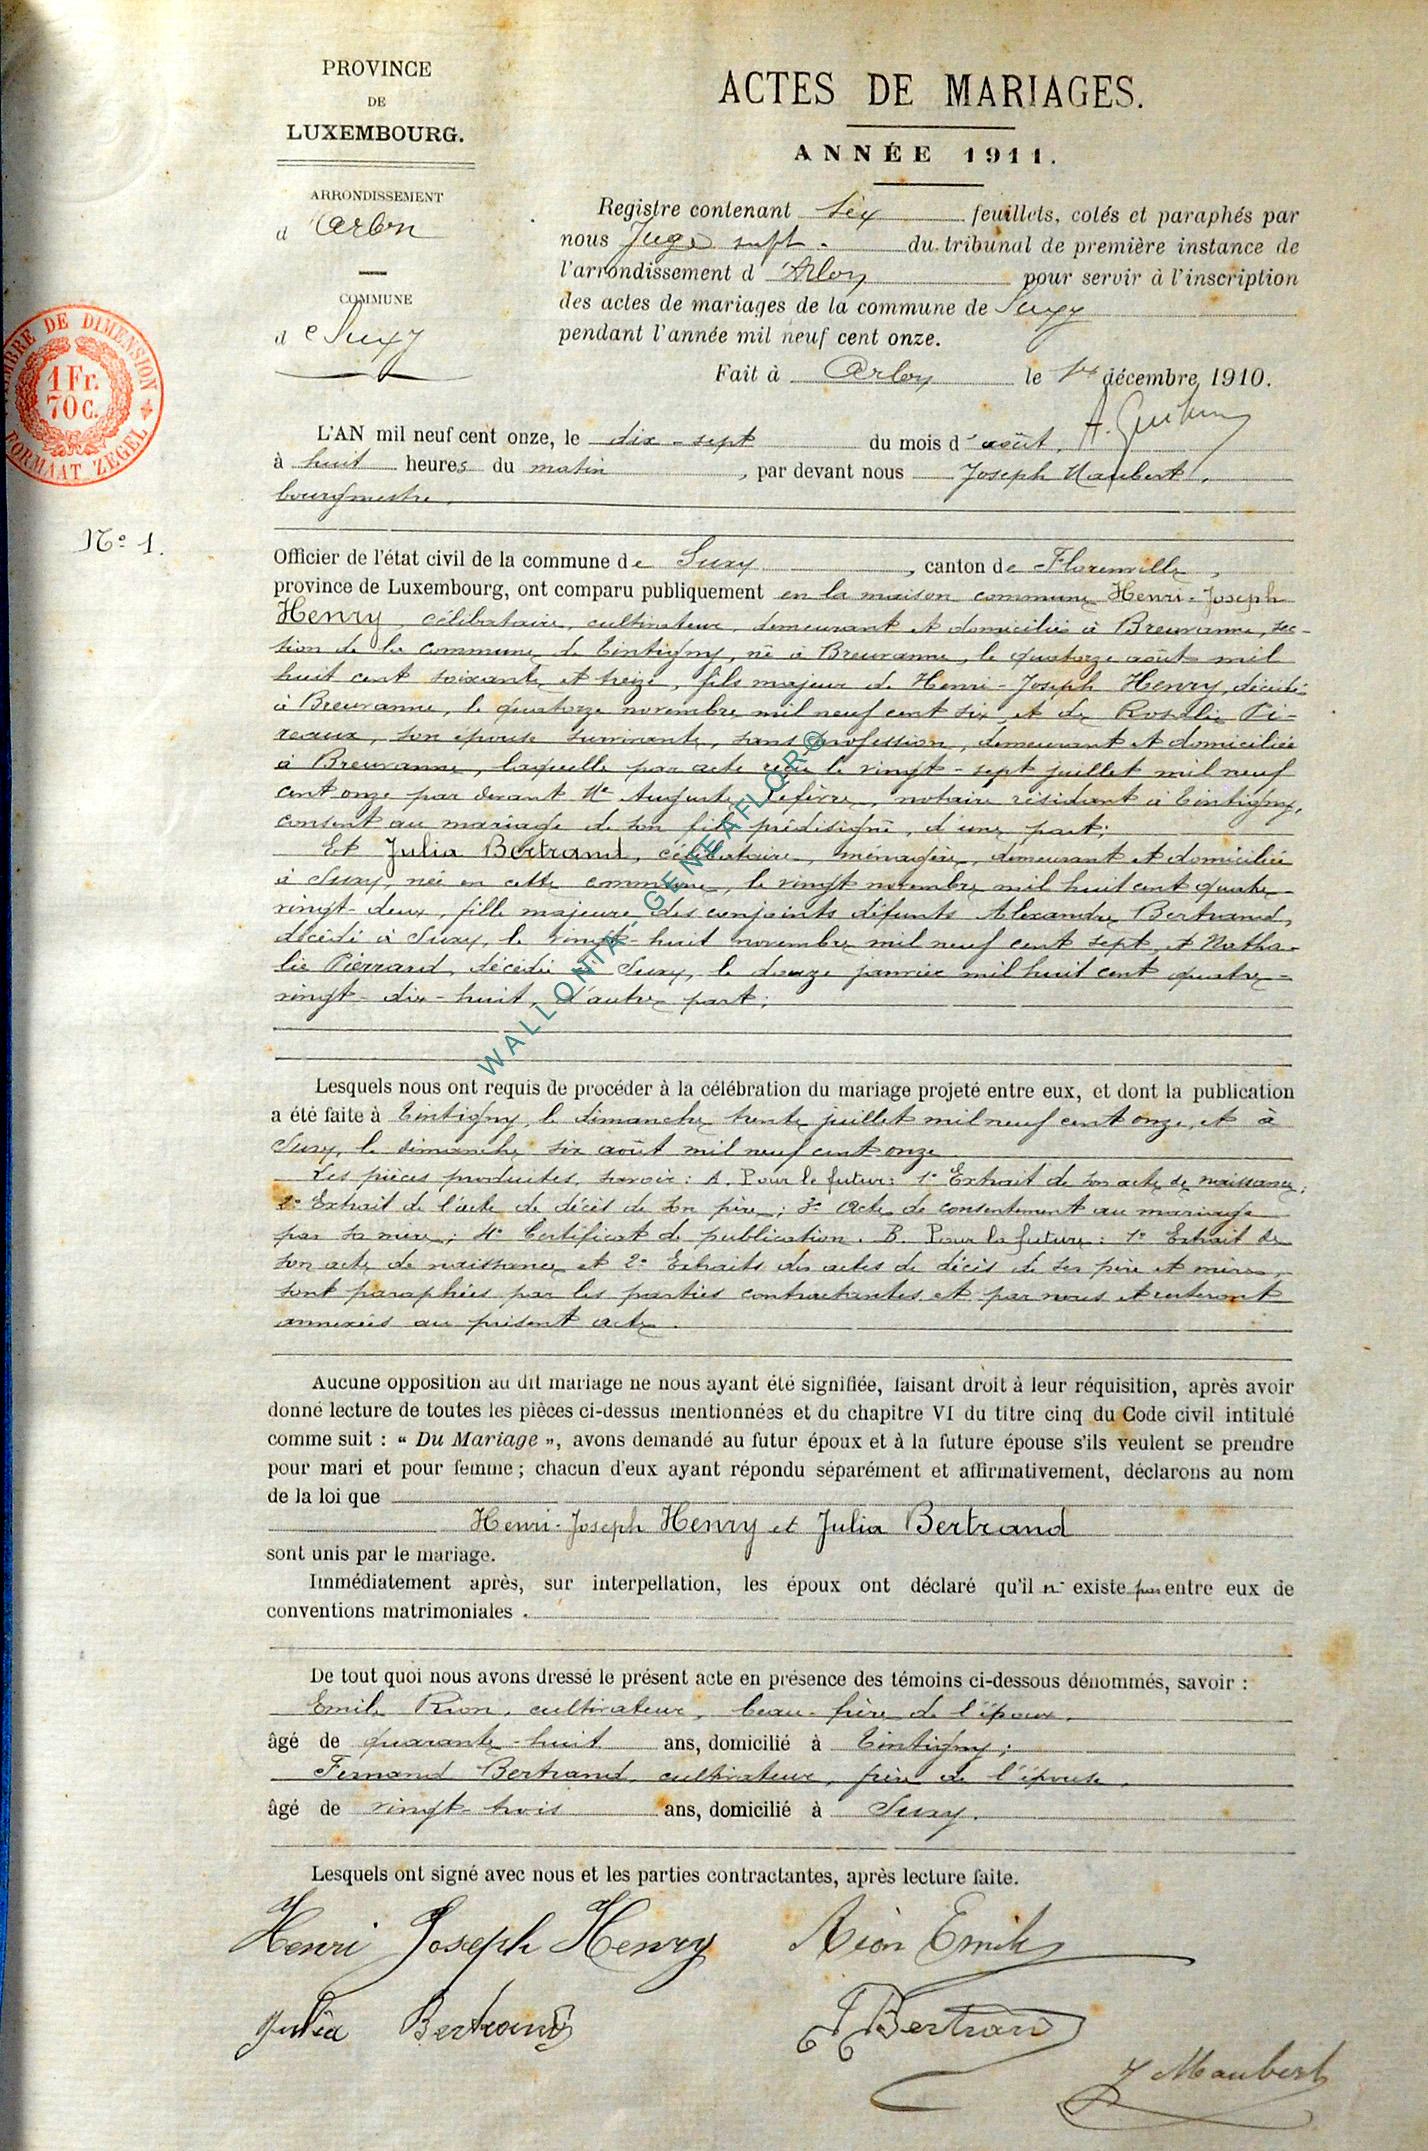 PROVINCE
DE
LUXEMBOURG.
ARRONDISSEMENT
d'Arlon
COMMUNE
de Suxy
TIMBRE DE DIMENSION
1 Fr.
70 c.
FORMAAT ZEGEL
ACTES DE MARIAGES.
ANNÉE 1911.
Registre contenant six feuillets, cotés et paraphés par
nous Juge supt. du tribunal de première instance de
l'arrondissement d'Arlon pour servir à l'inscription
des actes de mariages de la commune de Suxy
pendant l'année mil neuf cent onze.
Fait à Arlon le 1er décembre 1910.
L'AN mil neuf cent onze, le dix-sept du mois d'août,
à huit heures du matin, par devant nous Joseph Maubert,
bourgmestre,
No 1.
Officier de l'état civil de la commune de Suxy, canton de Florenville,
province de Luxembourg, ont comparu publiquement en la maison commune Henri-Joseph
Henry, célibataire, cultivateur, demeurant et domicilié à Breuvanne, sec-
tion de la commune de Tintigny, né à Breuvanne, le quatorze août mil
huit cent soixante et treize, fils majeur de Henri-Joseph Henry, décédé
à Breuvanne, le quatorze novembre mil neuf cent six, et de Rosalie Pi-
reaux, son épouse survivante, sans profession, demeurant et domiciliée
à Breuvanne, laquelle par acte reçu le vingt-sept juillet mil neuf
cent onze par devant Me Auguste Lefèvre, notaire résidant à Tintigny,
consent au mariage de son fils prédésigné, d'une part;
Et Julia Bertrand, célibataire, ménagère, demeurant et domiciliée
à Suxy, née en cette commune, le vingt novembre mil huit cent quatre-
vingt-deux, fille majeure des conjoints défunts Alexandre Bertrand,
décédé à Suxy, le vingt-huit novembre mil neuf cent sept, et Natha-
lie Pierrard, décédée à Suxy, le douze janvier mil huit cent quatre-
vingt-dix-huit, d'autre part;
WALLONIA - GENEAFLOR©
Lesquels nous ont requis de procéder à la célébration du mariage projeté entre eux, et dont la publication
a été faite à Tintigny, le dimanche trente juillet mil neuf cent onze, et à
Suxy, le dimanche six août mil neuf cent onze
Les pièces produites, savoir: A. Pour le futur: 1° Extrait de son acte de naissance;
2° Extrait de l'acte de décès de son père; 3° Acte de consentement au mariage
par sa mère; 4° Certificat de publication. B. Pour la future: 1° Extrait de
son acte de naissance et 2° Extraits des actes de décès de ses père et mère,
sont paraphées par les parties contractantes et par nous et resteront
annexées au présent acte.
Aucune opposition au dit mariage ne nous ayant été signifiée, faisant droit à leur réquisition, après avoir
donné lecture de toutes les pièces ci-dessus mentionnées et du chapitre VI du titre cinq du Code civil intitulé
comme suit : « Du Mariage », avons demandé au futur époux et à la future épouse s'ils veulent se prendre
pour mari et pour femme ; chacun d'eux ayant répondu séparément et affirmativement, déclarons au nom
de la loi que
Henri-Joseph Henry et Julia Bertrand
sont unis par le mariage.
Immédiatement après, sur interpellation, les époux ont déclaré qu'il n'existe pas entre eux de
conventions matrimoniales.
De tout quoi nous avons dressé le présent acte en présence des témoins ci-dessous dénommés, savoir :
Emile Rion, cultivateur, beau-frère de l'époux,
âgé de quarante-huit ans, domicilié à Tintigny;
Fernand Bertrand, cultivateur, frère de l'épouse,
âgé de vingt-trois ans, domicilié à Suxy.
Lesquels ont signé avec nous et les parties contractantes, après lecture faite.
Henri Joseph Henry Rion Emile
Julia Bertrand F Bertrand
J Maubert